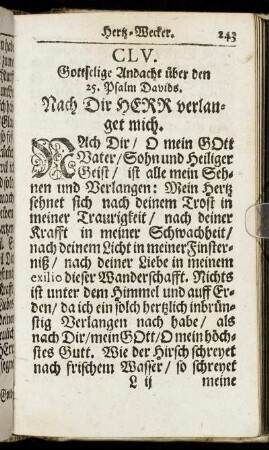 Hertz-Wecker. 243
CLV.
Gottselige Andacht über den
25. Psalm Davids.
Nach Dir HERR verlan-
get mich.
NAch Dir / O mein GOtt
Vater / Sohn und Heiliger
Geist / ist alle mein Seh-
nen und Verlangen: Mein Hertz
sehnet sich nach deinem Trost in
meiner Traurigkeit / nach deiner
Krafft in meiner Schwachheit /
nach deinem Licht in meiner Finster-
niß / nach deiner Liebe in meinem
exilio dieser Wanderschafft. Nichts
ist unter dem Himmel und auff Er-
den / da ich ein solch hertzlich inbrün-
stig Verlangen nach habe / als
nach Dir / mein GOtt / O mein höch-
stes Gutt. Wie der Hirsch schreyet
nach frischem Wasser / so schreyet
L ij meine